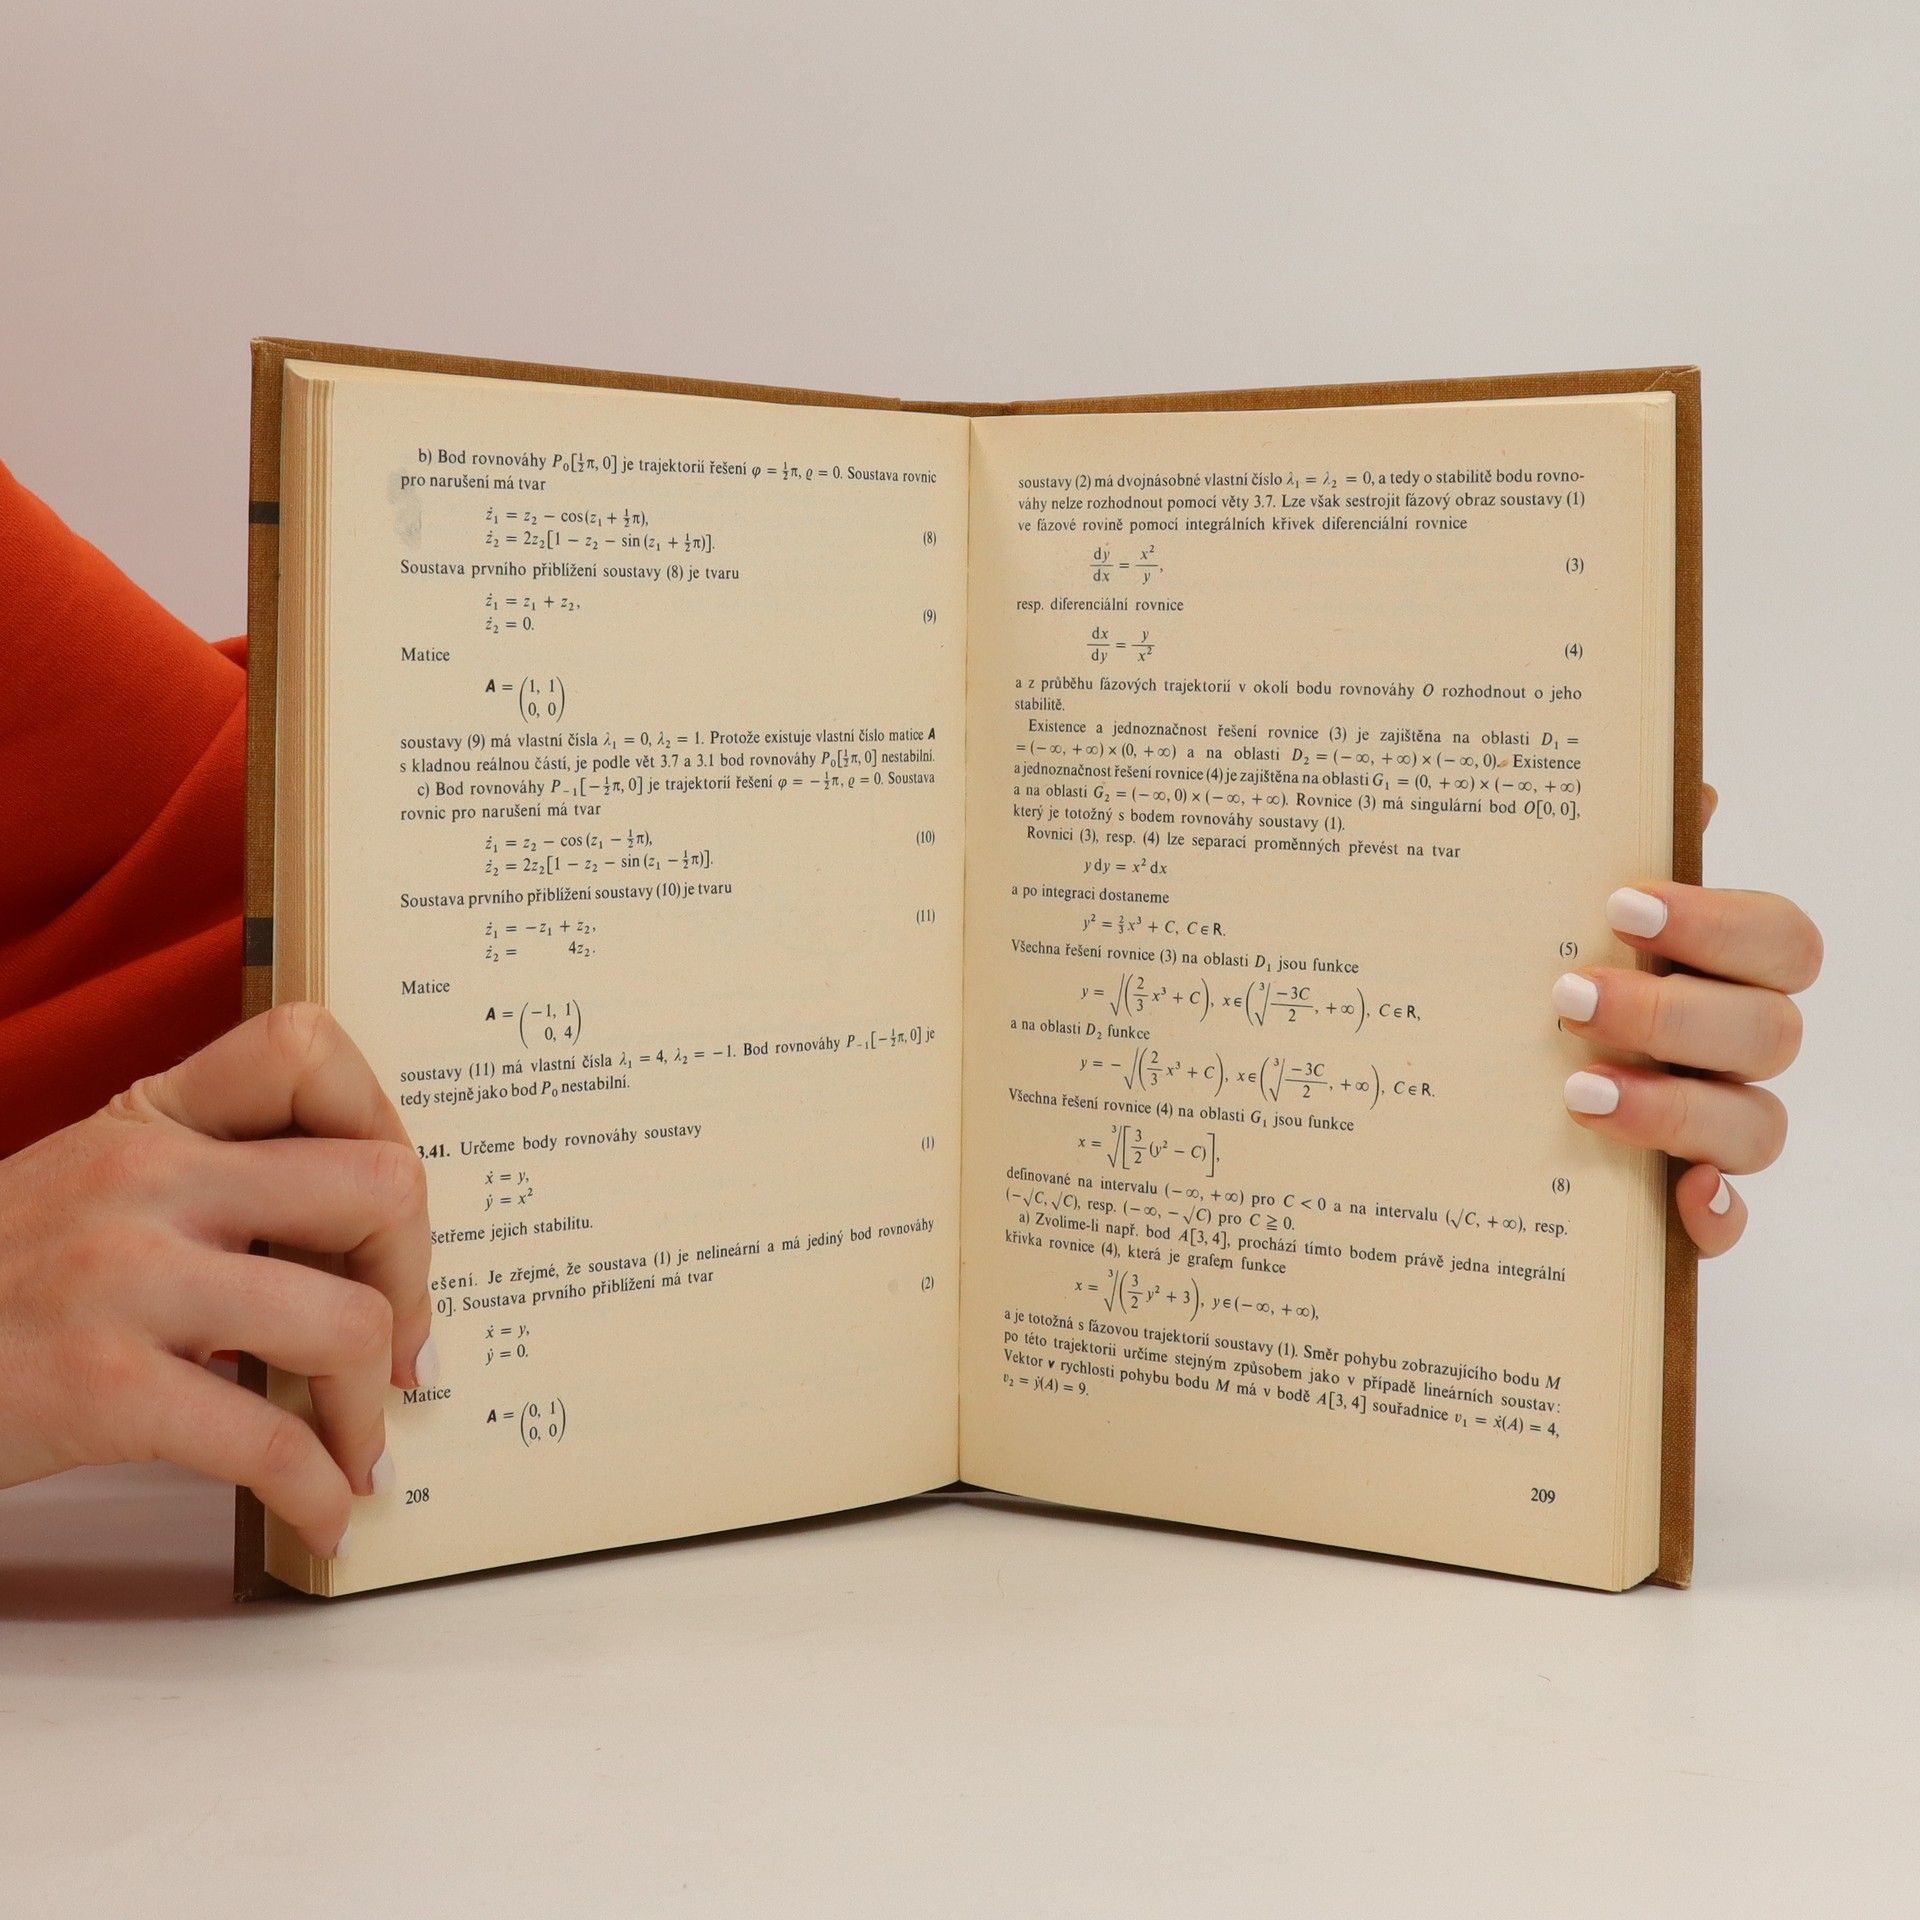 b) Bod rovnováhy P₀[½π, 0] je trajektorií řešení φ = ½π, ϱ = 0. Soustava rovnic
pro narušení má tvar
ż₁ = z₂ − cos(z₁ + ½π),
ż₂ = 2z₂[1 − z₂ − sin (z₁ + ½π)]. (8)
Soustava prvního přiblížení soustavy (8) je tvaru
ż₁ = z₁ + z₂,
ż₂ = 0. (9)
Matice
A = (1, 1
0, 0)
soustavy (9) má vlastní čísla λ₁ = 0, λ₂ = 1. Protože existuje vlastní číslo matice A
s kladnou reálnou částí, je podle vět 3.7 a 3.1 bod rovnováhy P₀[½π, 0] nestabilní.
c) Bod rovnováhy P₋₁[−½π, 0] je trajektorií řešení φ = −½π, ϱ = 0. Soustava
rovnic pro narušení má tvar
ż₁ = z₂ − cos (z₁ − ½π), (10)
ż₂ = 2z₂[1 − z₂ − sin (z₁ − ½π)].
Soustava prvního přiblížení soustavy (10) je tvaru
ż₁ = −z₁ + z₂, (11)
ż₂ = 4z₂.
Matice
A = (−1, 1
0, 4)
soustavy (11) má vlastní čísla λ₁ = 4, λ₂ = −1. Bod rovnováhy P₋₁[−½π, 0] je
tedy stejně jako bod P₀ nestabilní.
3.41. Určeme body rovnováhy soustavy (1)
ẋ = y,
ẏ = x²
šetřeme jejich stabilitu.
ešení. Je zřejmé, že soustava (1) je nelineární a má jediný bod rovnováhy
0]. Soustava prvního přiblížení má tvar (2)
ẋ = y,
ẏ = 0.
Matice
A = (0, 1
0, 0)
208
soustavy (2) má dvojnásobné vlastní číslo λ₁ = λ₂ = 0, a tedy o stabilitě bodu rovno-
váhy nelze rozhodnout pomocí věty 3.7. Lze však sestrojit fázový obraz soustavy (1)
ve fázové rovině pomocí integrálních křivek diferenciální rovnice
dy/dx = x²/y, (3)
resp. diferenciální rovnice
dx/dy = y/x² (4)
a z průběhu fázových trajektorií v okolí bodu rovnováhy O rozhodnout o jeho
stabilitě.
Existence a jednoznačnost řešení rovnice (3) je zajištěna na oblasti D₁ =
= (−∞, +∞) × (0, +∞) a na oblasti D₂ = (−∞, +∞) × (−∞, 0). Existence
a jednoznačnost řešení rovnice (4) je zajištěna na oblasti G₁ = (0, +∞) × (−∞, +∞)
a na oblasti G₂ = (−∞, 0) × (−∞, +∞). Rovnice (3) má singulární bod O[0, 0],
který je totožný s bodem rovnováhy soustavy (1).
Rovnici (3), resp. (4) lze separací proměnných převést na tvar
y dy = x² dx
a po integraci dostaneme
y² = ⅔x³ + C, C ∈ R. (5)
Všechna řešení rovnice (3) na oblasti D₁ jsou funkce
y = √(2/3 x³ + C), x ∈ (∛(−3C/2), +∞), C ∈ R,
a na oblasti D₂ funkce
y = −√(2/3 x³ + C), x ∈ (∛(−3C/2), +∞), C ∈ R.
Všechna řešení rovnice (4) na oblasti G₁ jsou funkce
x = ∛[3/2 (y² − C)], (8)
definované na intervalu (−∞, +∞) pro C < 0 a na intervalu (√C, +∞), resp.
(−√C, √C), resp. (−∞, −√C) pro C ≧ 0.
a) Zvolíme-li např. bod A[3, 4], prochází tímto bodem právě jedna integrální
křivka rovnice (4), která je grafem funkce
x = ∛(3/2 y² + 3), y ∈ (−∞, +∞),
a je totožná s fázovou trajektorií soustavy (1). Směr pohybu zobrazujícího bodu M
po této trajektorii určíme stejným způsobem jako v případě lineárních soustav:
Vektor v rychlosti pohybu bodu M má v bodě A[3, 4] souřadnice v₁ = ẋ(A) = 4,
v₂ = ẏ(A) = 9.
209